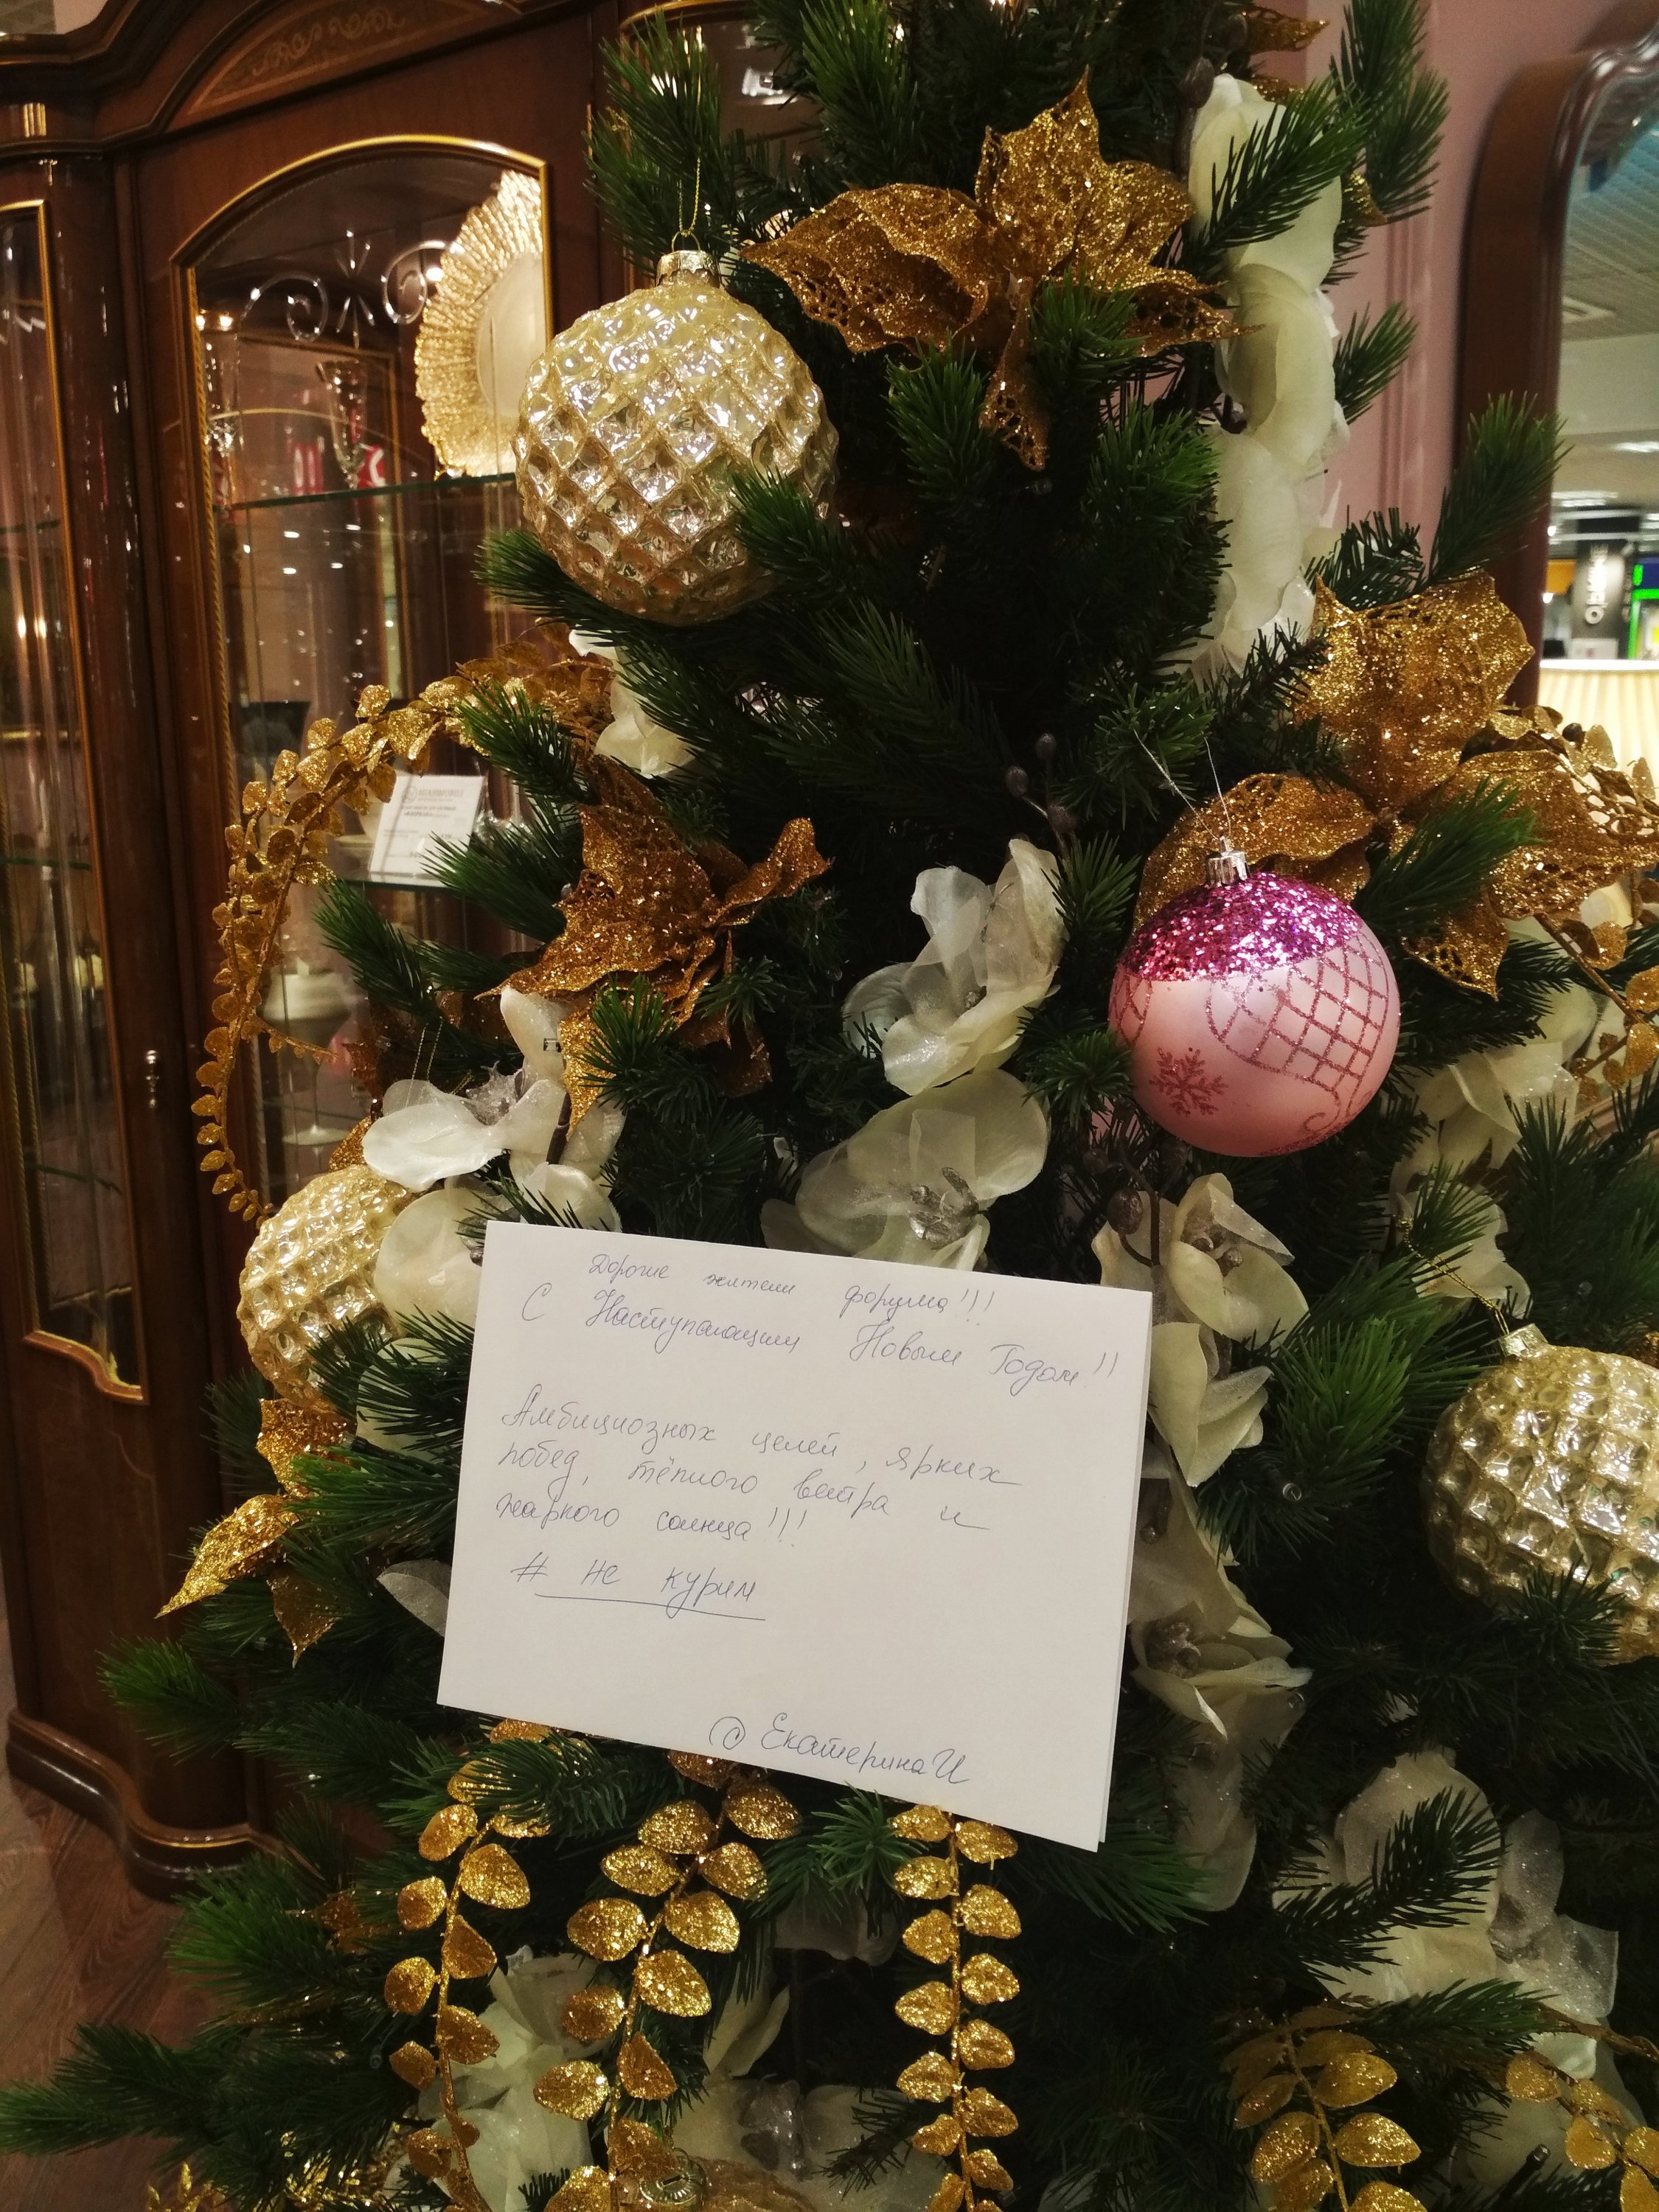 Дорогие жители форума!!!
С Наступающим Новым Годом!!
Амбициозных целей, ярких
побед, тёплого ветра и
жаркого солнца!!!
# не курим
@ ЕкатеринаИ